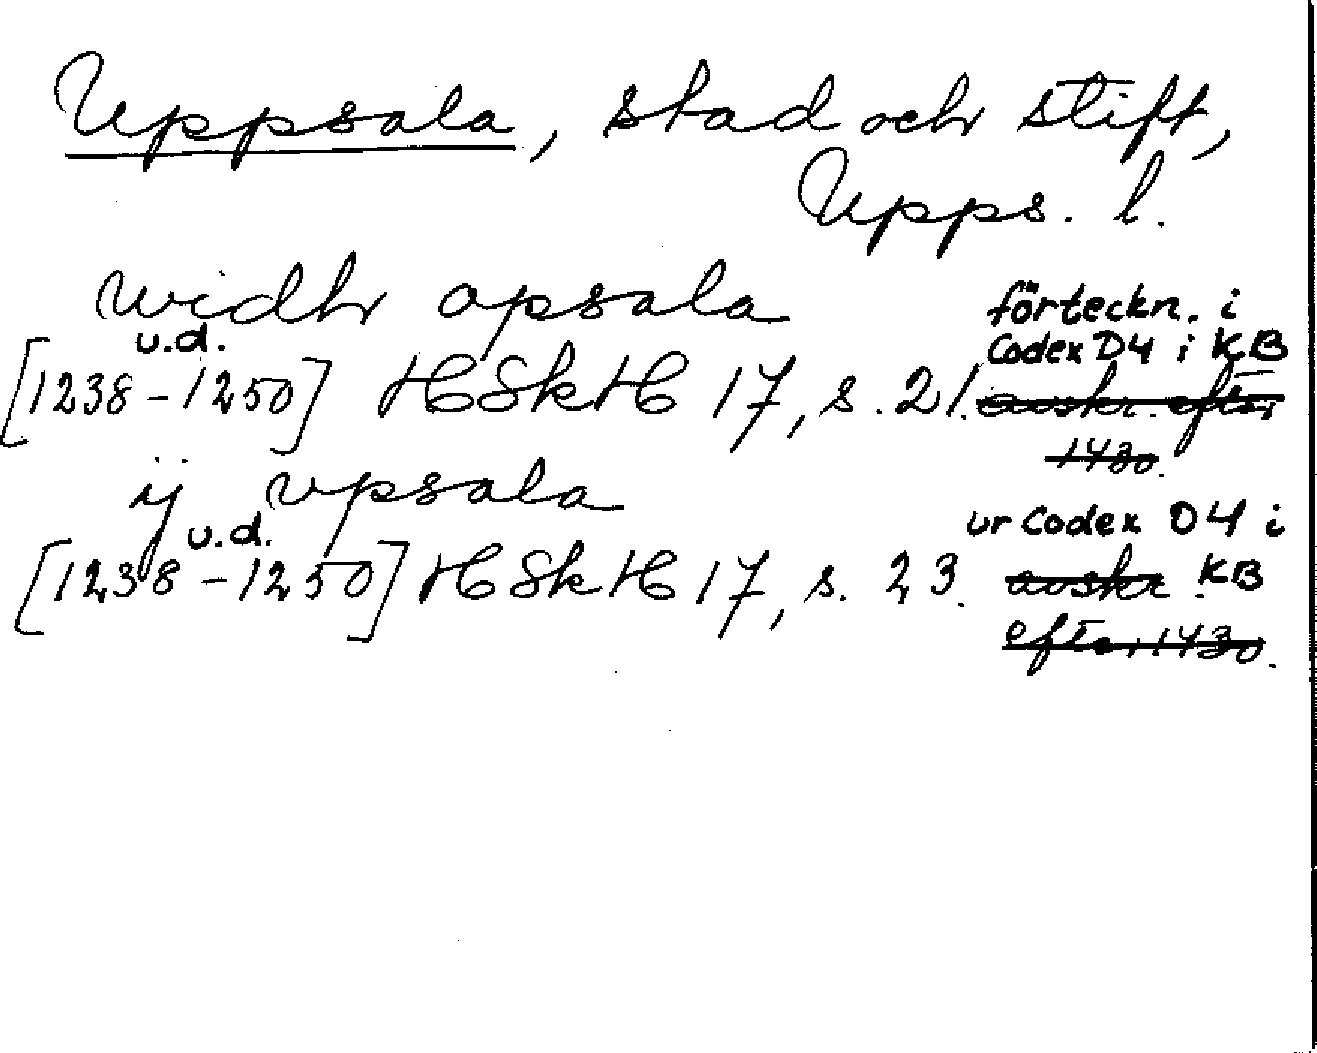 Uppsala, stad och stift,
Upps. l.
widhr opsala
förteckn. i
u.d.
Codex D4 i KB
[1238-1250] HSkH 17, s. 21. avskr. efter
1430.
ÿ vpsala
u.d.
ur Codex D4 i
[1238-1250] HSkH 17, s. 23. avskr. KB
efter 1430.